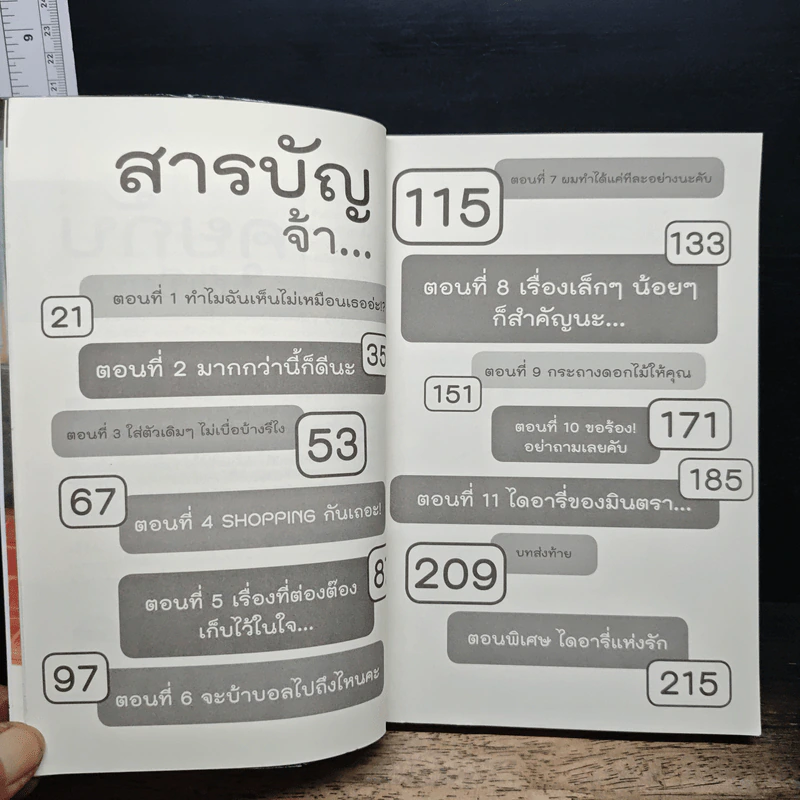 สารบัญ
จ้า...
ตอนที่ 1 ทำไมฉันเห็นไม่เหมือนเธออ่ะ!?
21
ตอนที่ 2 มากกว่านี้ก็ดีนะ
35
ตอนที่ 3 ใส่ตัวเดิมๆ ไม่เบื่อบ้างรึไง
53
67
ตอนที่ 4 SHOPPING กันเถอะ!
ตอนที่ 5 เรื่องที่ต่องต๊อง
เก็บไว้ในใจ...
97
ตอนที่ 6 จะบ้าบอลไปถึงไหนคะ
ตอนที่ 7 ผมทำได้แค่ทีละอย่างนะคับ
115
133
ตอนที่ 8 เรื่องเล็กๆ น้อยๆ
ก็สำคัญนะ...
ตอนที่ 9 กระถางดอกไม้ให้คุณ
151
ตอนที่ 10 ขอร้อง!
อย่าถามเลยคับ
171
185
ตอนที่ 11 ไดอารี่ของมินตรา...
บทส่งท้าย
209
ตอนพิเศษ ไดอารี่แห่งรัก
215
9
24
23
22
21